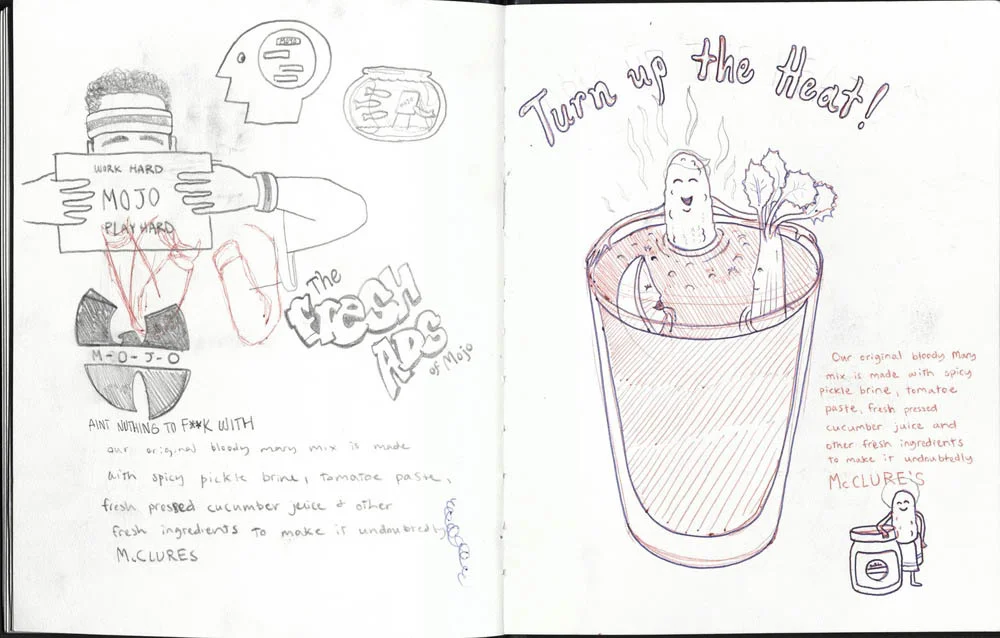 WORK HARD
MOJO
PLAY HARD
MOJO
The
FRESH
ADS
of Mojo
M-O-J-O
AINT NOTHING TO F**K WITH
our original bloody mary mix is made
with spicy pickle brine, tomatoe paste,
fresh pressed cucumber jeice & other
fresh ingredients to make it undoubtedly
McCLURES
Turn up the Heat!
Our original bloody Mary
mix is made with spicy
pickle brine, tomatoe
paste, fresh pressed
cucumber juice and
other fresh ingredients
to make it undoubtedly
McCLURE'S